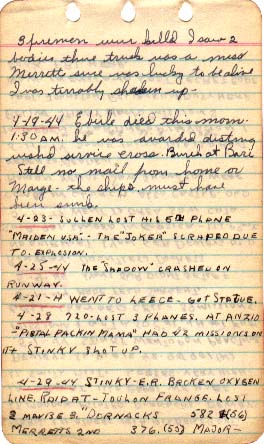 3 firemen were killed I saw 2
bodies, three trucks was a mess
Merrett sure was lucky to be alive
I was terrably shaken up -
4-19-44 Eberle died this morn.
1:30 A.M. he was awarded disting
uished service cross. Buried at Bari
Still no mail from home or
Marge - the ships must have
been sunk.
4-23- SULLEN LOST HIS 5TH PLANE
"MAIDEN USA" - THE "JOKER" SCRAPED DUE
TO EXPLOSION.
4-25-44 THE "SHADOW" CRASHED ON
RUNWAY.
4-21-4 WENT TO LEECE - GOT STATUE.
4-28 720-LOST 3 PLANES, AT ANZIO
"PISTAL PACKIN MAMA" HAD 42 MISSIONS ON
IT STINKY SHOT UP.
4-29-44 STINKY - E.R. BROKEN OXYGEN
LINE, RAID AT - TOULON FRANCE. LOST
2 MAYBE 3. "DORNACKS 582 (56)
MERRETTS 2ND 376. (55) MAJOR-